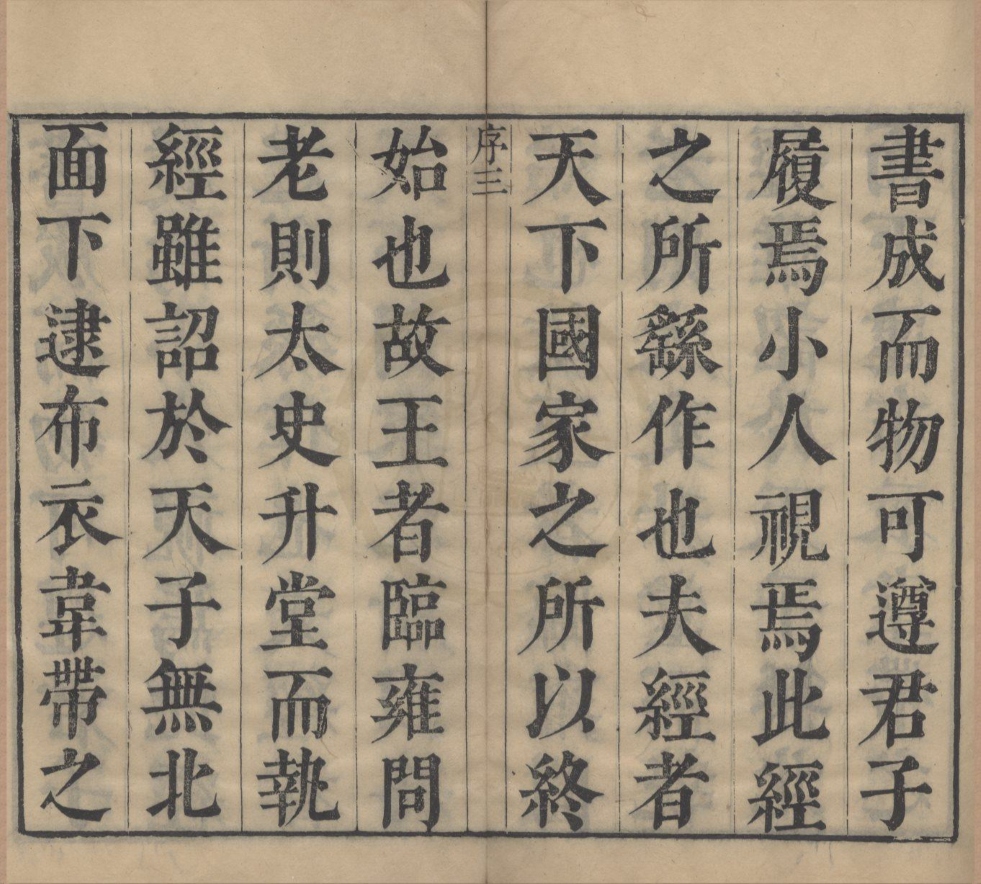 書成而物可遵君子
履焉小人視焉此經
之所繇作也夫經者
天下國家之所以終
序三
始也故王者臨雍問
老則太史升堂而執
經雖詔於天子無北
面下逮布衣韋帶之